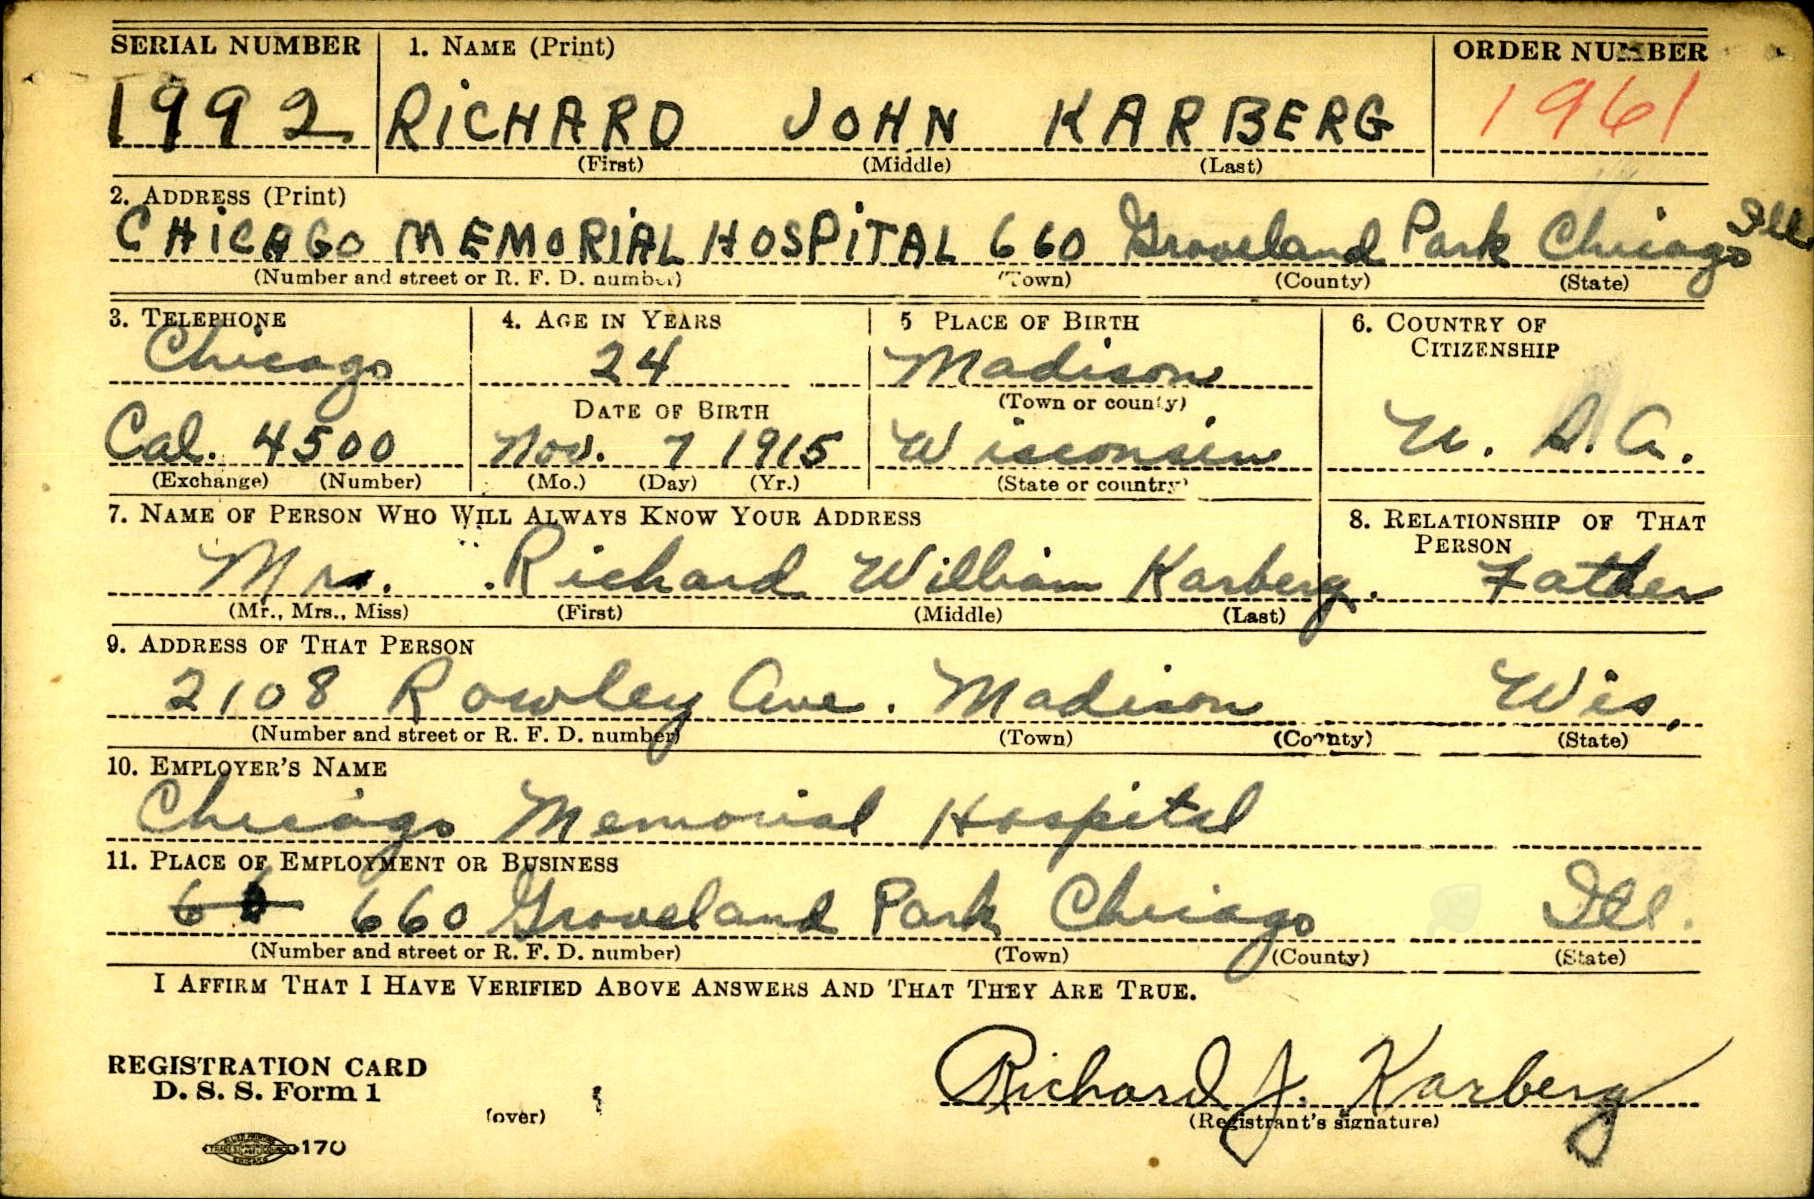 SERIAL NUMBER 1. NAME (Print) ORDER NUMBER
1992 RICHARD JOHN KARBERG 1961
(First) (Middle) (Last)
2. ADDRESS (Print)
CHICAGO MEMORIAL HOSPITAL 660 Groveland Park Chicago Ill
(Number and street or R. F. D. number) (Town) (County) (State)
3. TELEPHONE 4. AGE IN YEARS 5 PLACE OF BIRTH 6. COUNTRY OF
CITIZENSHIP
Chicago 24 Madison
DATE OF BIRTH (Town or county)
Cal. 4500 Nov. 7 1915 Wisconsin U. S. A.
(Exchange) (Number) (Mo.) (Day) (Yr.) (State or country)
7. NAME OF PERSON WHO WILL ALWAYS KNOW YOUR ADDRESS 8. RELATIONSHIP OF THAT
PERSON
Mr. Richard William Karberg. Father
(Mr., Mrs., Miss) (First) (Middle) (Last)
9. ADDRESS OF THAT PERSON
2108 Rowley Ave. Madison Wis.
(Number and street or R. F. D. number) (Town) (County) (State)
10. EMPLOYER'S NAME
Chicago Memorial Hospital
11. PLACE OF EMPLOYMENT OR BUSINESS
660 Groveland Park Chicago Ill.
(Number and street or R. F. D. number) (Town) (County) (State)
I AFFIRM THAT I HAVE VERIFIED ABOVE ANSWERS AND THAT THEY ARE TRUE.
REGISTRATION CARD
D. S. S. Form 1
(over)
Richard J. Karberg
(Registrant's signature)
170